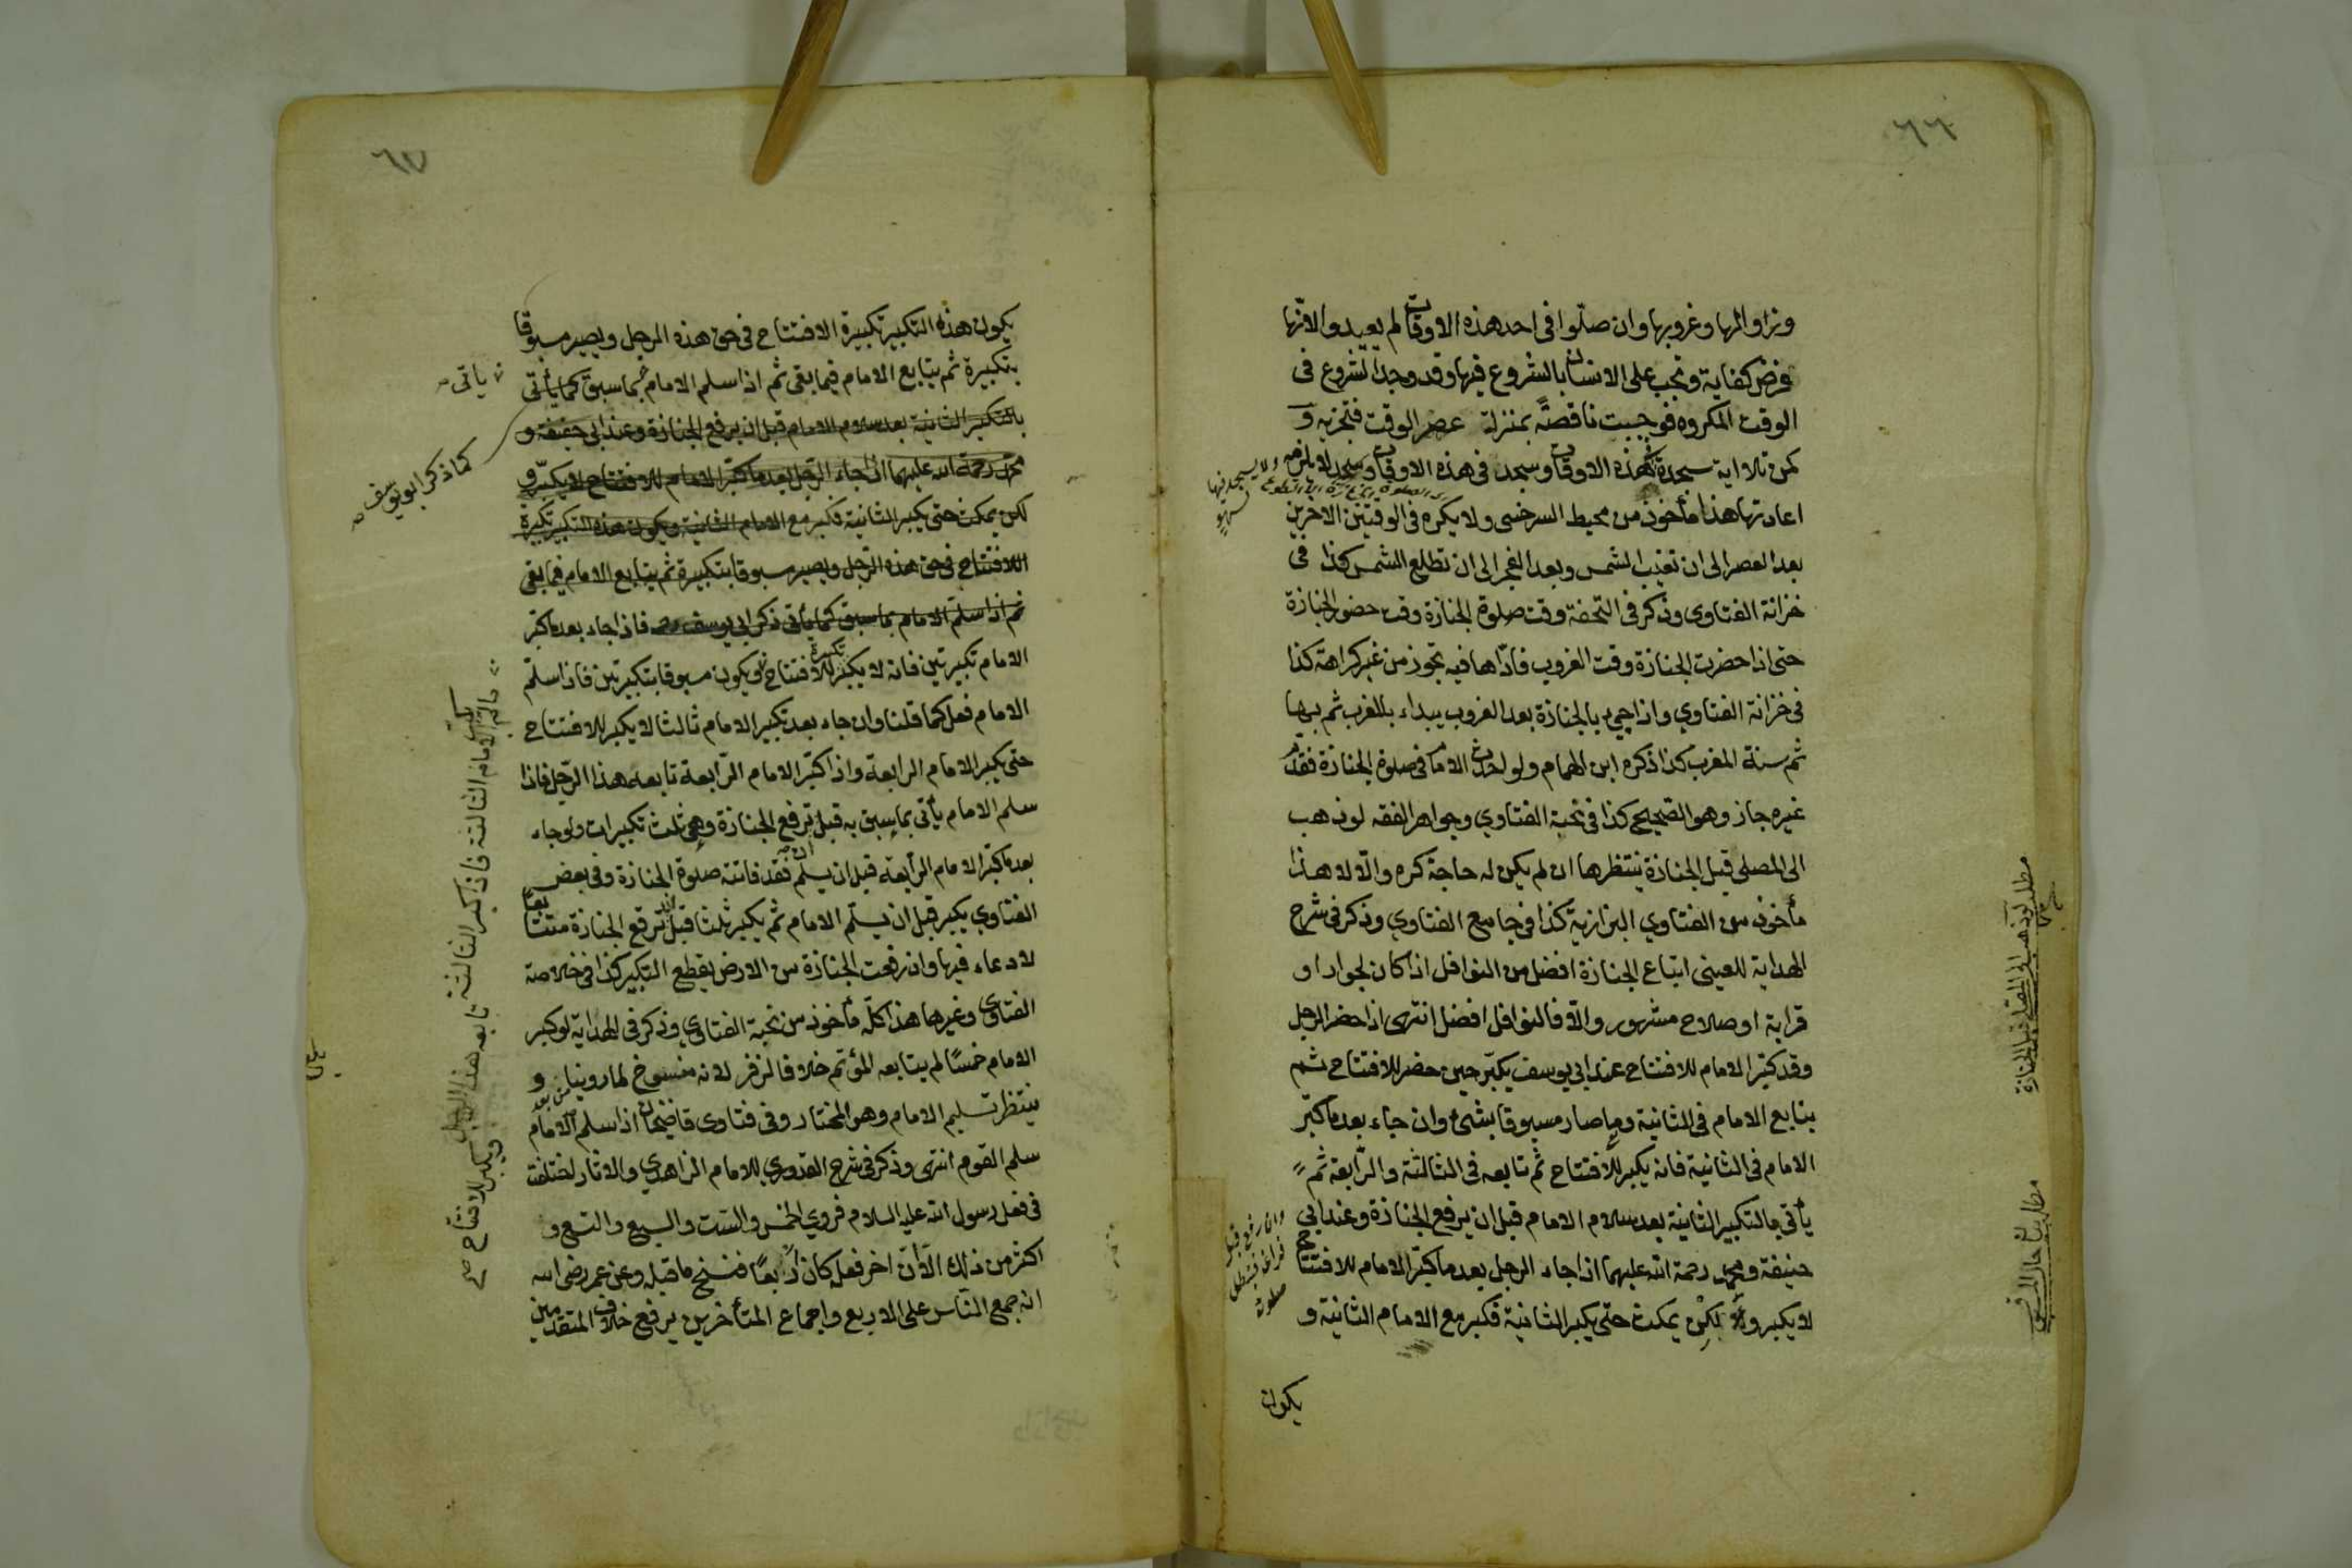 ٦٦
وزوالها وغروبها وان صلّوا فى احد هذه الاوقات لم يعيدوا لانّها
فرض كفاية وتجب على الانسان بالشروع فيها وقد وجد الشروع فى
الوقت المكروه فوجبت ناقصةً بمنزلة عصر الوقت فتجزيه و
كمن تلا اية سجدة فى هذه الاوقات وسجد فى هذه الاوقات
اعادتها هذا مأخوذ من محيط السرخسى ولا يكره فى الوقتين الاخرين
بعد العصر الى ان تغرب الشمس وبعد الفجر الى ان تطلع الشمس كذا فى
خزانة الفتاوى وذكر فى التحفة وقت صلوة الجنازة وقت حضور الجنازة
حتى اذا حضرت الجنازة وقت الغروب فادّاها فيه تجوز من غير كراهة كذا
فى خزانة الفتاوي واذا جيء بالجنازة بعد الغروب يبداء بالمغرب ثم بها
ثم سنة المغرب كذا ذكره ابن الهمام ولو احدث الامام فى صلوة الجنازة فقدّم
غيره جاز وهو الصّحيح كذا فى نخبة الفتاوي وجواهر الفقه لو ذهب
الى المصلى قبل الجنازة ينتظرها ان لم يكن له حاجة كره والّا لا هذا
مأخوذ من الفتاوي البزازية كذا فى جامع الفتاوي وذكر فى شرح
الهداية للعينى اتباع الجنازة افضل من النوافل اذا كان لجوار او
قرابة او صلاح مشهور والّا فالنوافل افضل انتهى اذا حضر الرجل
وقد كبّر الامام للافتتاح عند ابي يوسف يكبّر حين حضر للافتتاح ثم
يتابع الامام فى الثانية وما صار مسبوقا بشىء وان جاء بعد ما كبّر
الامام فى الثانية فانه يكبر للافتتاح ثم تابعه فى الثالثة والرّابعة ثم
يأتى بالتكبير الثانية بعد سلام الامام قبل ان يرفع الجنازة وعند ابي
حنيفة ومحمد رحمة الله عليهما اذا جاء الرجل بعد ما كبّر الامام للافتتاح
لا يكبر و لكن يمكث حتّى يكبر الثانية فكبر مع الامام الثانية و
يكون
مطلب لو ذهب الى المصلى قبل الجنازة
٦٧
يكون هذه التكبير تكبيرة الافتتاح فى حق هذه الرجل ويصير مسبوقا
بتكبيرة ثم يتابع الامام فيما بقى ثم اذا سلم الامام بما سبق كما يأتى
بالتكبير الثانية بعد سلام الامام قبل ان يرفع الجنازة وعند ابى حنيفة و
محمد رحمة الله عليهما اذا جاء الرّجل بعد ما كبّر الامام للافتتاح لا يكبّر و
لكن يمكث حتى يكبر الثانية فكبر مع الامام الثانية ويكون هذه التكبير تكبيرة
الافتتاح فى حق هذه الرّجل ويصير مسبوقا بتكبيرة ثم يتابع الامام فيما بقى
ثم اذا سلّم الامام بما سبق كما يأتى ذكر ابى يوسف فاذا جاء بعد ما كبّر
الامام تكبيرتين فانه لا يكبّر تكبيرة للافتتاح ويكون مسبوقا بتكبيرتين فاذا سلّم
الامام فعل كما قلنا وان جاء بعد تكبير الامام ثالثا لا يكبر للافتتاح
حتى يكبر الامام الرابعة واذا كبّر الامام الرّابعة تابعه هذا الرّجل فاذا
سلم الامام يأتى بما سبق به قبل ان ترفع الجنازة وهى ثلث تكبيرات ولو جاء
بعد ما كبّر الامام الرّابعة قبل ان يسلّم فقد فاتته صلوة الجنازة وفى بعض
الفتاوي يكبر قبل ان يسلّم الامام ثم يكبر ثلثا قبل ان ترفع الجنازة متتابعا
لا دعاء فيها وان رفعت الجنازة من الارض يقطع التكبير كذا فى خلاصة
الفتاوى وغيرها هذا كلّه مأخوذ من نخبة الفتاوي وذكر فى الهداية لو كبر
الامام خمسًا لم يتابعه المؤتم خلافا لزفر لانه منسوخ لما روينا و
ينتظر تسليم الامام وهو المختار وفى فتاوى قاضيخان اذا سلم الامام
سلم القوم انتهى وذكر فى شرح القدوري للامام الزاهدي والاثار اختلفت
فى فعل رسول الله عليه السلام فروي الخمس والست والسبع والتسع و
اكثر من ذلك الّا انّ اخر فعله كان اربعًا فنسخ ما قبله وعن عمر رضى الله
انه جمع النّاس على الاربع واجماع المتأخرين يرفع خلاف المتقدمين
ياتى
كما ذكر ابو يوسف
الامام الثالثة فاذا كبر الثالثة تابعه هذا الرجل ويكبر للافتتاح